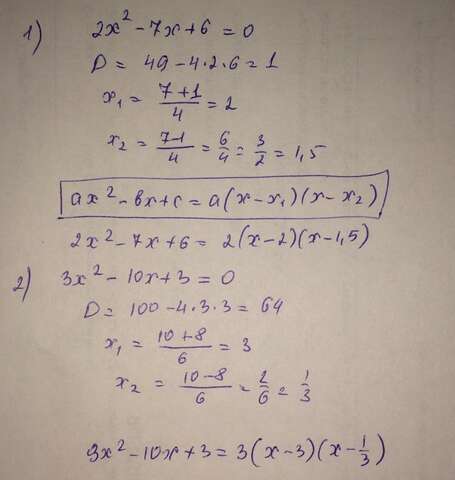 1) 2x² - 7x + 6 = 0
D = 49 - 4·2·6 = 1
x₁ = (7+1)/4 = 2
x₂ = (7-1)/4 = 6/4 = 3/2 = 1,5
ax² - bx + c = a(x - x₁)(x - x₂)
2x² - 7x + 6 = 2(x - 2)(x - 1,5)
2) 3x² - 10x + 3 = 0
D = 100 - 4·3·3 = 64
x₁ = (10+8)/6 = 3
x₂ = (10-8)/6 = 2/6 = 1/3
3x² - 10x + 3 = 3(x - 3)(x - 1/3)